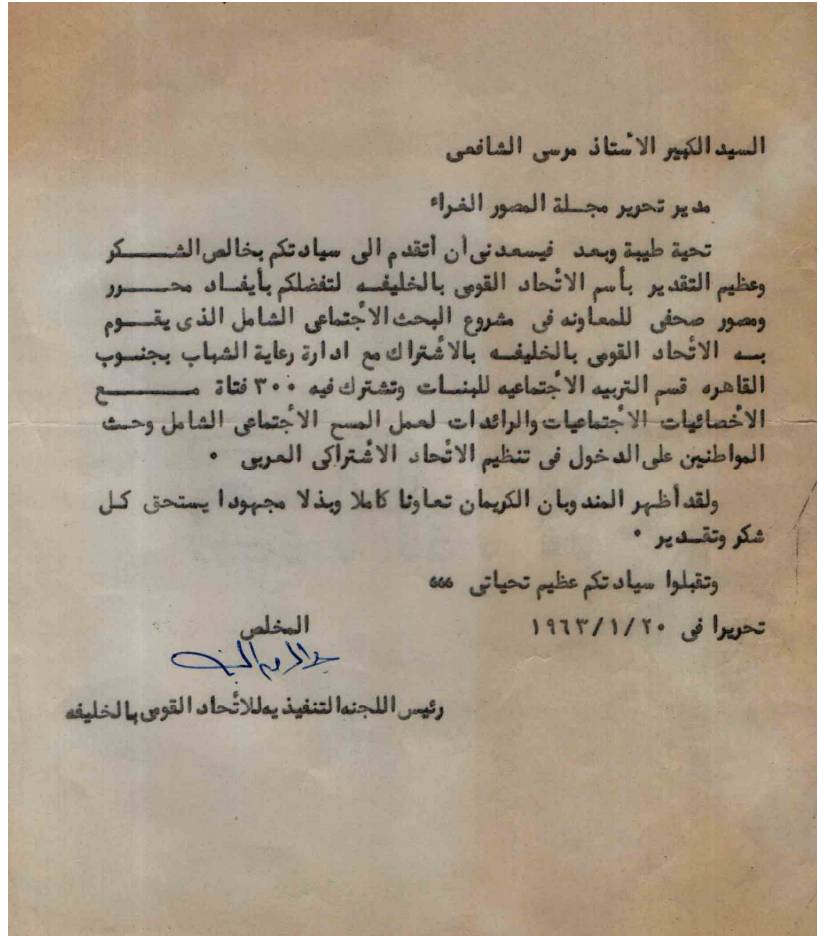 السيد الكبير الأستاذ مرسى الشافعى
مدير تحرير مجلة المصور الغراء
تحية طيبة وبعد فيسعدنى أن أتقدم الى سيادتكم بخالص الشكر
وعظيم التقدير بأسم الاتحاد القومى بالخليفه لتفضلكم بأيفاد محرر
ومصور صحفى للمعاونه فى مشروع البحث الأجتماعى الشامل الذى يقوم
به الاتحاد القومى بالخليفه بالأشتراك مع ادارة رعاية الشباب بجنوب
القاهره قسم التربيه الأجتماعيه للبنات وتشترك فيه ٣٠٠ فتاة مع
الأخصائيات الأجتماعيات والرائدات لعمل المسح الأجتماعى الشامل وحث
المواطنين على الدخول فى تنظيم الاتحاد الأشتراكى العربى ٠
ولقد أظهر المندوبان الكريمان تعاونا كاملا وبذلا مجهودا يستحق كل
شكر وتقدير ٠
وتقبلوا سيادتكم عظيم تحياتى ،،،
تحريرا فى ١٩٦٣/١/٢٠
المخلص
رئيس اللجنه التنفيذيه للاتحاد القومى بالخليفه